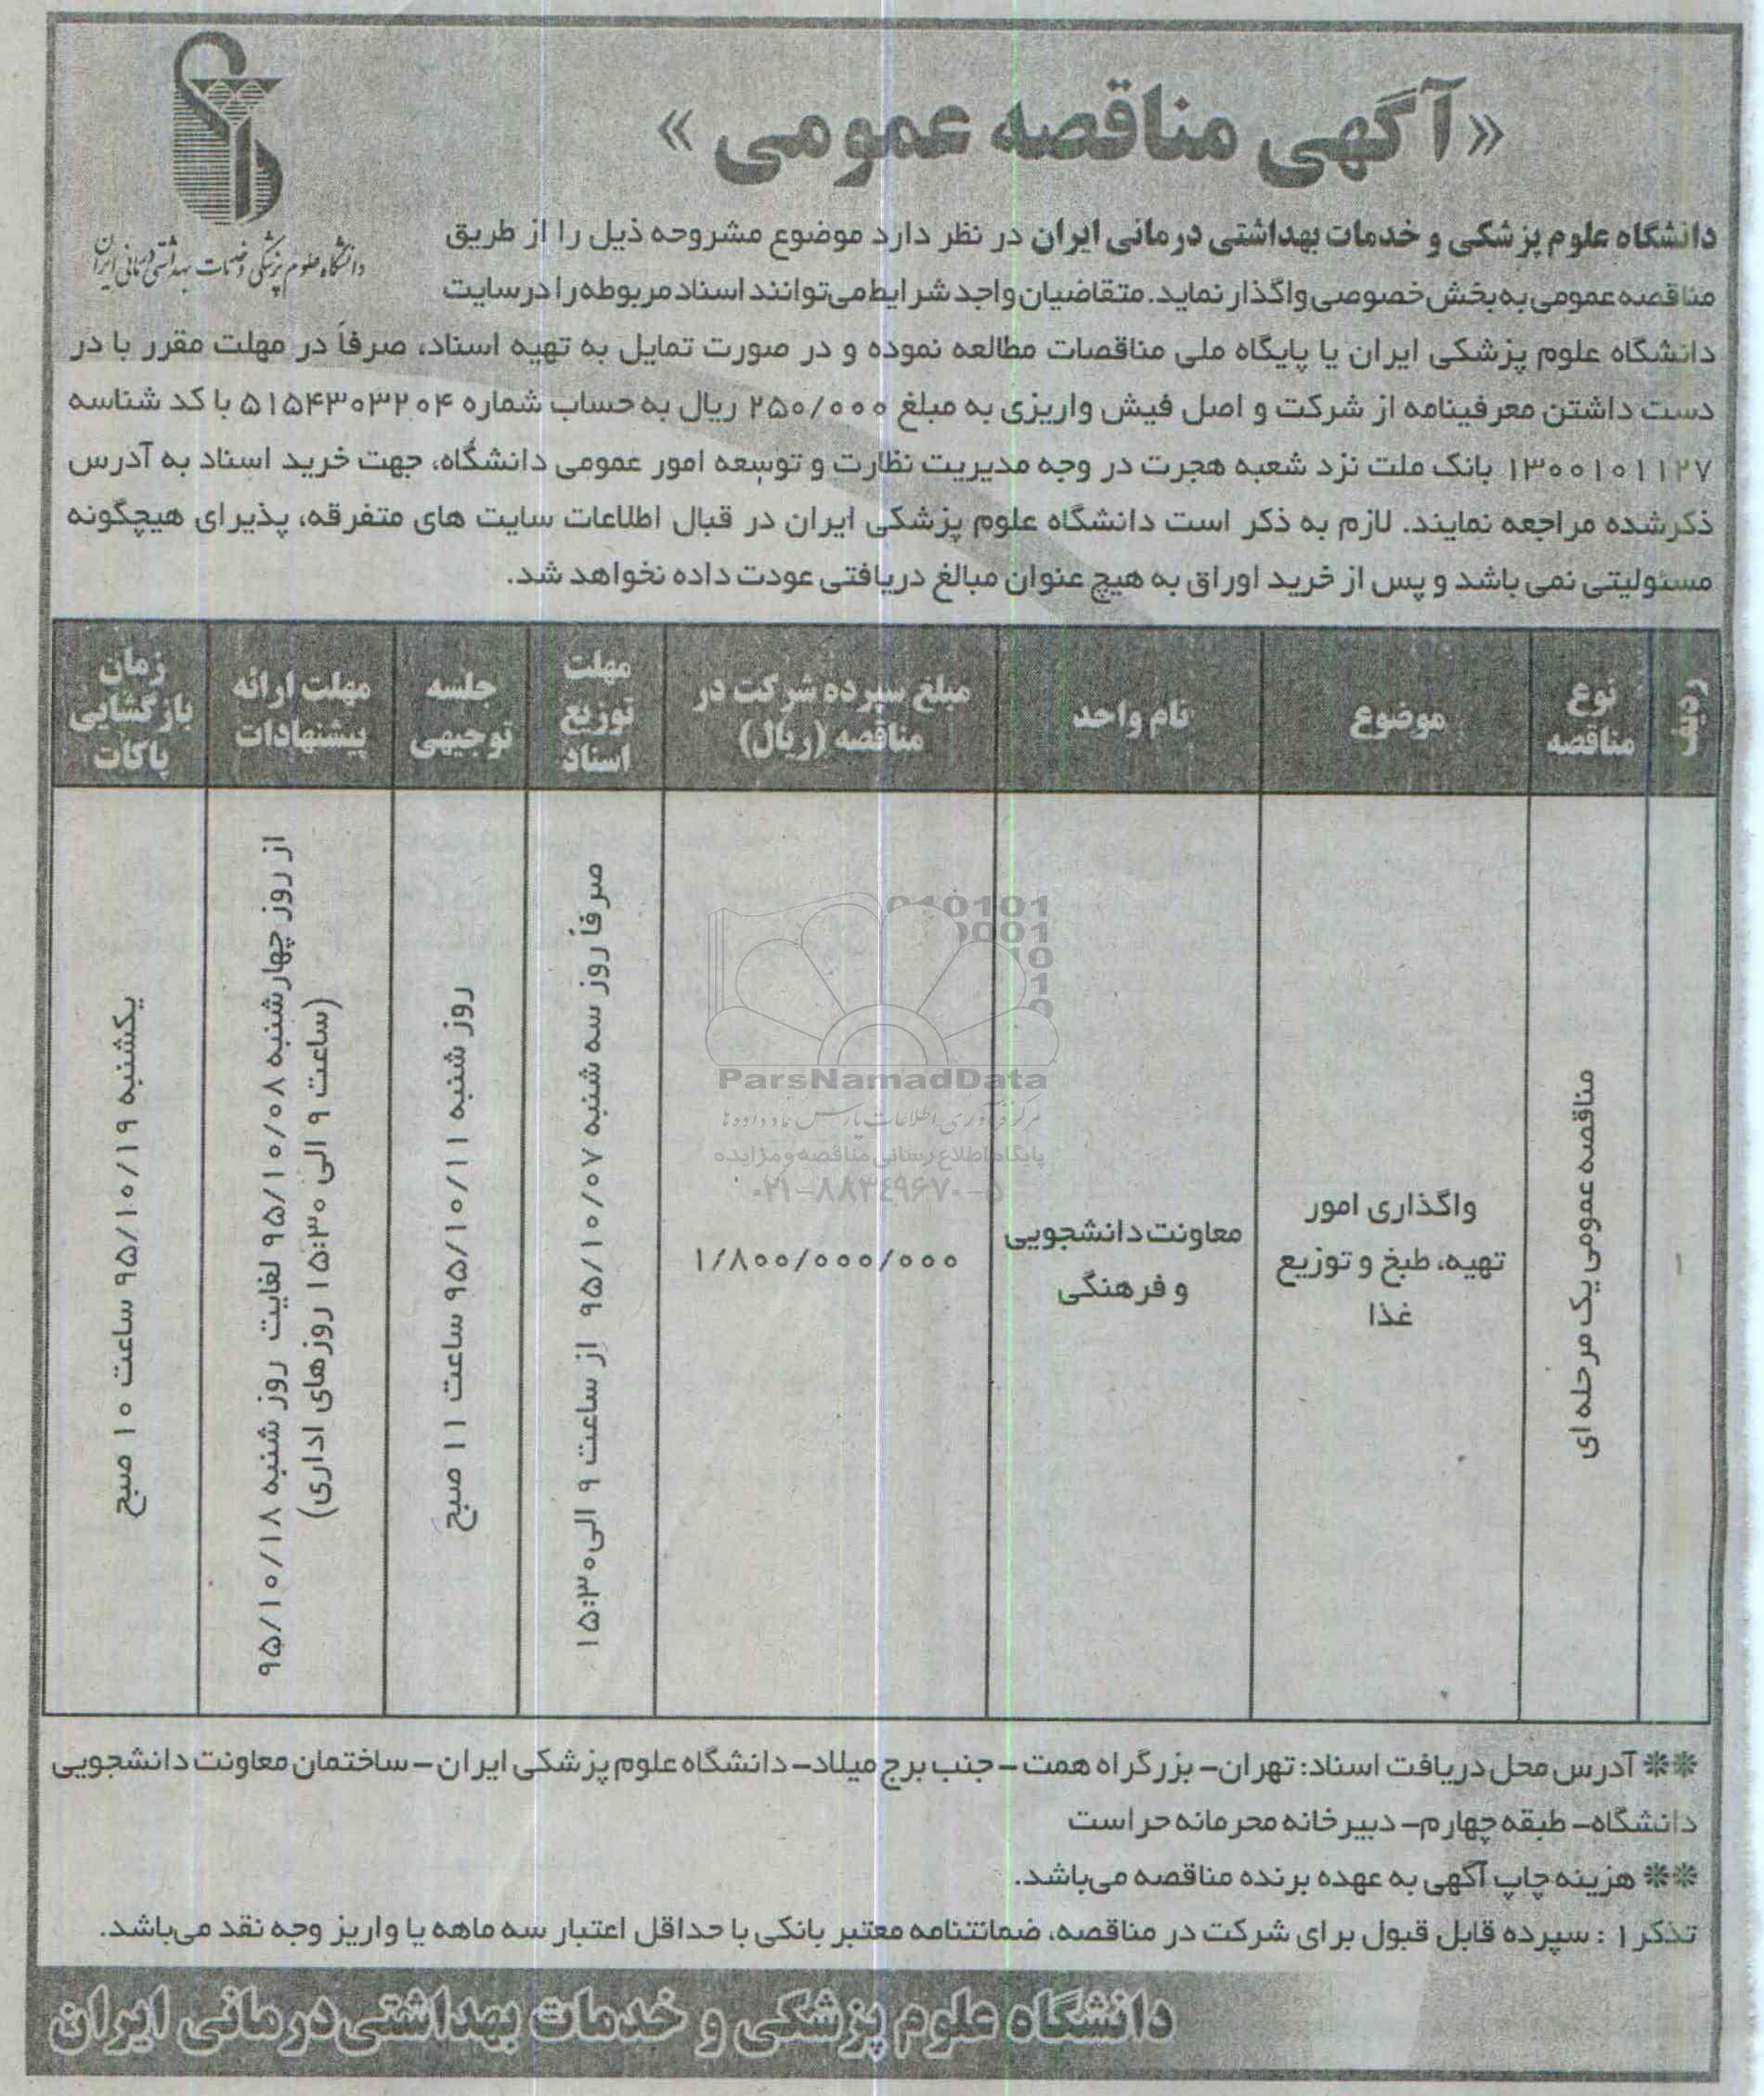 «آگهی مناقصه عمومی»
دانشگاه علوم پزشکی و خدمات بهداشتی درمانی ایران
دانشگاه علوم پزشکی و خدمات بهداشتی درمانی ایران در نظر دارد موضوع مشروحه ذیل را از طریق
مناقصه عمومی به بخش خصوصی واگذار نماید. متقاضیان واجد شرایط می‌توانند اسناد مربوطه را در سایت
دانشگاه علوم پزشکی ایران یا پایگاه ملی مناقصات مطالعه نموده و در صورت تمایل به تهیه اسناد، صرفاً در مهلت مقرر با در
دست داشتن معرفینامه از شرکت و اصل فیش واریزی به مبلغ ۲۵۰/۰۰۰ ریال به حساب شماره ۵۱۵۴۳۰۳۲۰۴ با کد شناسه
۱۳۰۰۱۰۱۱۲۷ بانک ملت نزد شعبه هجرت در وجه مدیریت نظارت و توسعه امور عمومی دانشگاه، جهت خرید اسناد به آدرس
ذکرشده مراجعه نمایند. لازم به ذکر است دانشگاه علوم پزشکی ایران در قبال اطلاعات سایت های متفرقه، پذیرای هیچگونه
مسئولیتی نمی باشد و پس از خرید اوراق به هیچ عنوان مبالغ دریافتی عودت داده نخواهد شد.
ردیف
نوع
مناقصه
موضوع
نام واحد
مبلغ سپرده شرکت در
مناقصه (ریال)
مهلت
توزیع
اسناد
جلسه
توجیهی
مهلت ارائه
پیشنهادات
زمان
بازگشایی
پاکات
۱
مناقصه عمومی یک مرحله ای
واگذاری امور
تهیه، طبخ و توزیع
غذا
معاونت دانشجویی
و فرهنگی
۱/۸۰۰/۰۰۰/۰۰۰
صرفاً روز سه شنبه ۹۵/۱۰/۰۷ از ساعت ۹ الی ۱۵:۳۰
روز شنبه ۹۵/۱۰/۱۱ ساعت ۱۱ صبح
از روز چهارشنبه ۹۵/۱۰/۰۸ لغایت روز شنبه ۹۵/۱۰/۱۸
(ساعت ۹ الی ۱۵:۳۰ روزهای اداری)
یکشنبه ۹۵/۱۰/۱۹ ساعت ۱۰ صبح
ParsNamadData
مرکز فرآوری اطلاعات پارس نماد داده ها
پایگاه اطلاع رسانی مناقصه و مزایده
۰۲۱-۸۸۳۴۹۶۷۰-۵
** آدرس محل دریافت اسناد: تهران- بزرگراه همت - جنب برج میلاد- دانشگاه علوم پزشکی ایران - ساختمان معاونت دانشجویی
دانشگاه- طبقه چهارم- دبیرخانه محرمانه حراست
** هزینه چاپ آگهی به عهده برنده مناقصه می‌باشد.
تذکر ۱ : سپرده قابل قبول برای شرکت در مناقصه، ضمانتنامه معتبر بانکی با حداقل اعتبار سه ماهه یا واریز وجه نقد می‌باشد.
دانشگاه علوم پزشکی و خدمات بهداشتی درمانی ایران